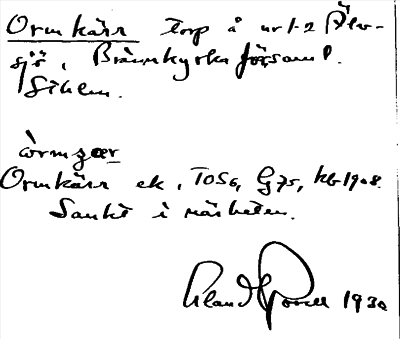 Ormkärr torp å nr 1-2 Älv-
sjö, Brännkyrka församl.
Sthlm.
òrmçær
Ormkärr ek, TOS6, G75, kb 1908.
Sankt i närheten.
Erland 1930